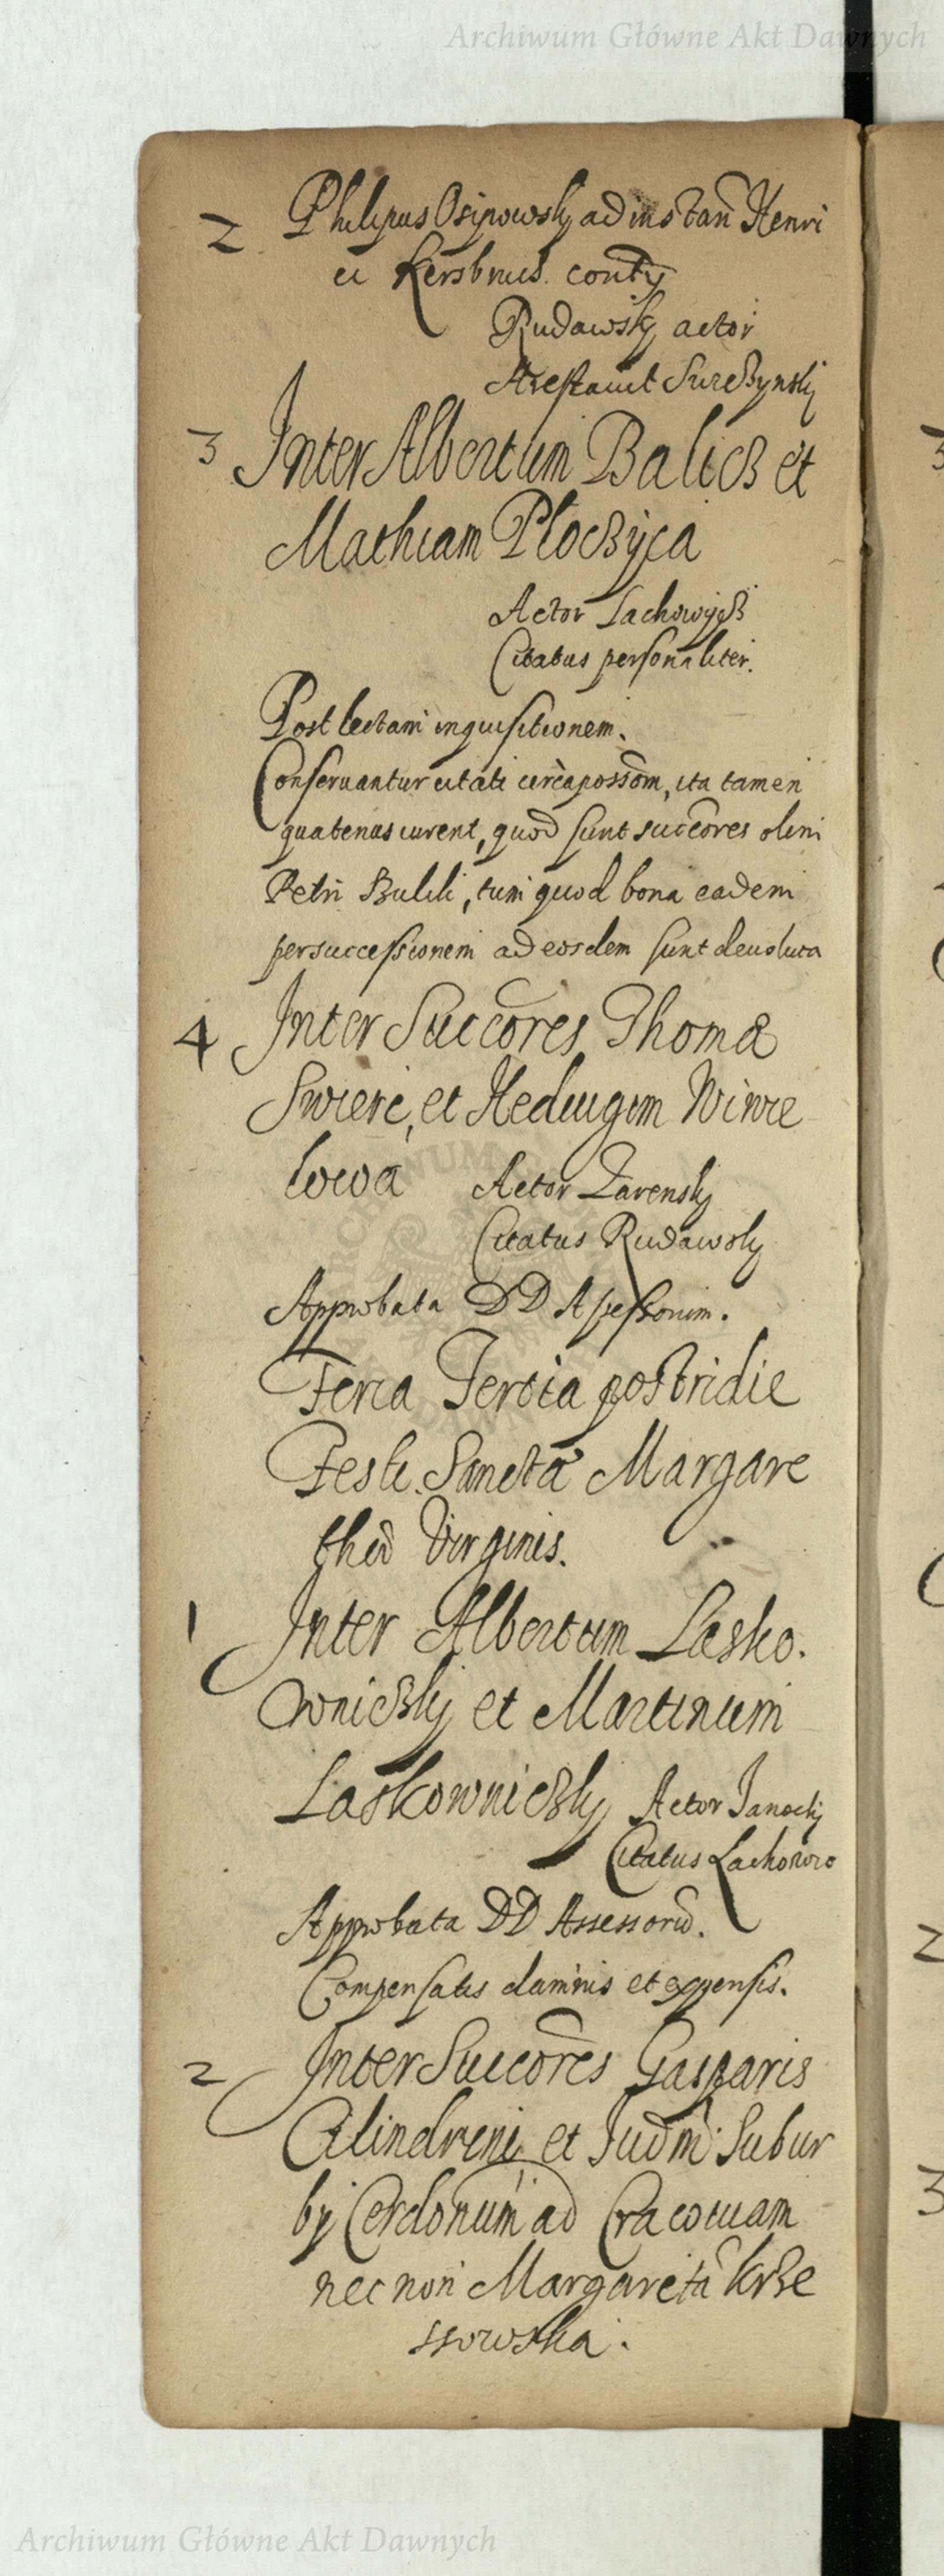 Archiwum Główne Akt Dawnych
2 Philipus Osipowsky ad instan Henri
ci Kersbrus. contÿ
Rudawsky actor
Arestavit
3 Inter Albertum Balicz et
Mathiam Ploczÿca
Actor Lachowÿcz
Citatus personaliter.
Post lectam inquisitionem.
Conservantur citati circa possom, ita tamen
quatenus iurent, quod sunt succores olim
Petri Bulili, tum quod bona eadem
per successionem ad eosdem sunt devoluta
4 Inter Succores Thomæ
Swierc, et Hedvigem Wiwie
lowa Actor Zarensky
Citatus Rudawsky
Approbata DD Assessorum.
Feria Tertia postridie
Festi Sanctæ Margare
thæ Virginis.
1 Inter Albertum Lasko.
wniczkÿ et Martinum
Laskowniczkÿ Actor Janockÿ
Citatus Lachowic
Approbata DD Assessorū.
Compensatis damnis et expensis.
2 Inter Succores Gasparis
Cilindreni et Judm Subur
bÿ Cerdonum ad Cracoviam
nec non Margaretā Krze
ssowska.
Archiwum Główne Akt Dawnych